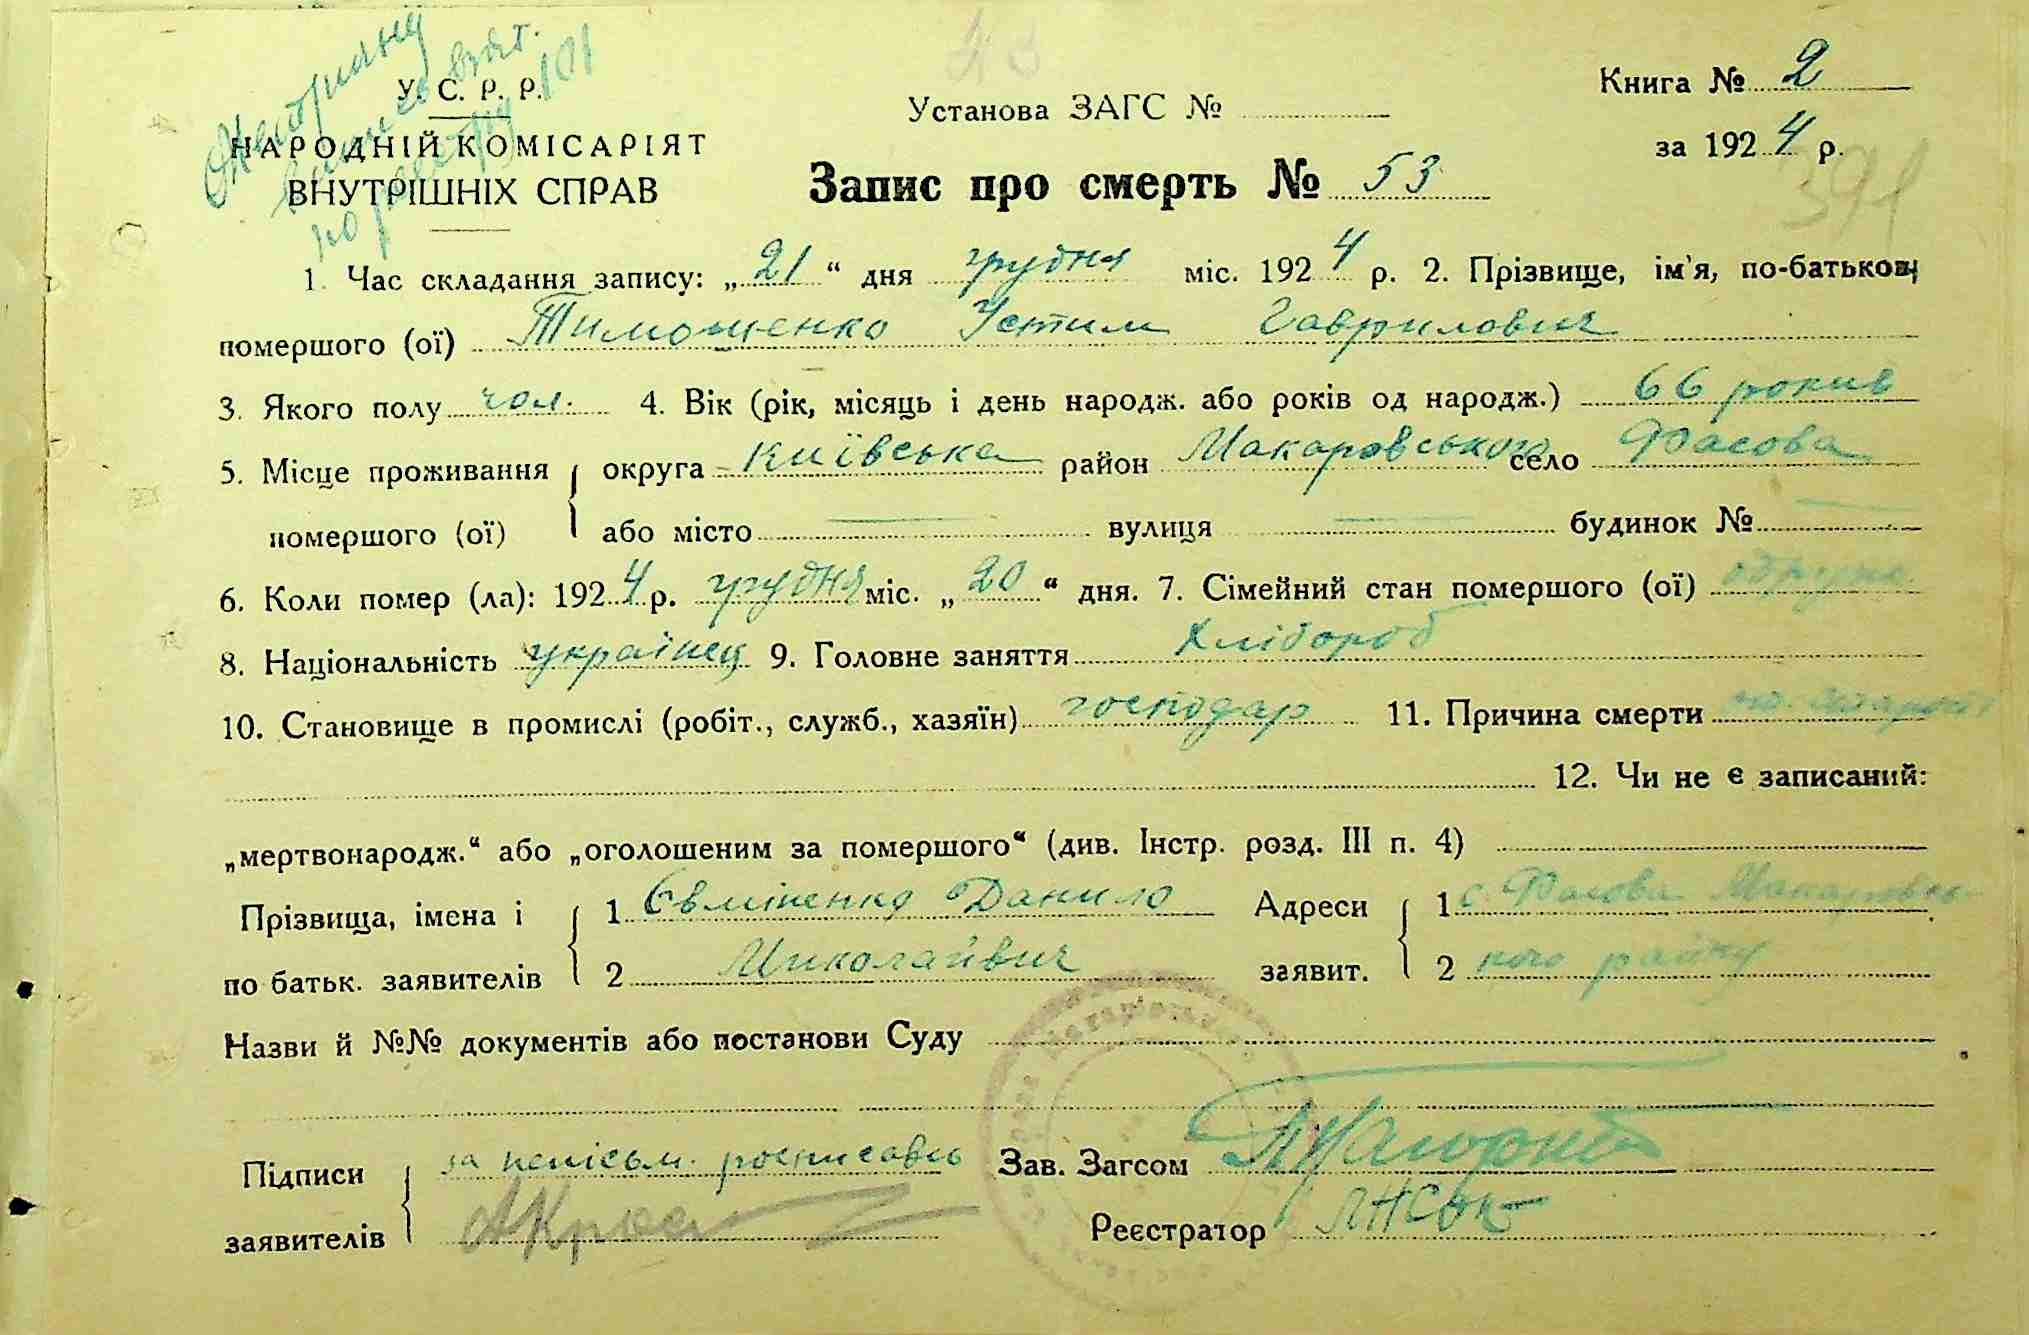 У. С. Р. Р.
НАРОДНІЙ КОМІСАРІЯТ
ВНУТРІШНІХ СПРАВ
43
Установа ЗАГС №
Запис про смерть № 53
Книга № 2
за 1924 р.
391
1. Час складання запису: „21“ дня грудня міс. 1924 р. 2. Прізвище, ім'я, по-батькові
помершого (ої) Тимошенко Устим Гаврилович
3. Якого полу чол. 4. Вік (рік, місяць і день народж. або років од народж.) 66 років
5. Місце проживання округа Київська район Макаровського село Фасова
помершого (ої) або місто — вулиця — будинок № —
6. Коли помер (ла): 1924 р. грудня міс. „20“ дня. 7. Сімейний стан помершого (ої)
8. Національність українец 9. Головне заняття Хлібороб
10. Становище в промислі (робіт., служб., хазяїн) господар 11. Причина смерти
12. Чи не є записаний:
„мертвонародж.“ або „оголошеним за помершого“ (див. Інстр. розд. III п. 4)
Прізвища, імена і 1 Данило Адреси 1 с. Фасова Макаровсь
по батьк. заявителів 2 Миколайвич заявит. 2 кого райну
Назви й №№ документів або постанови Суду
Підписи за непісьм. росписавсь Зав. Загсом
заявителів Реєстратор